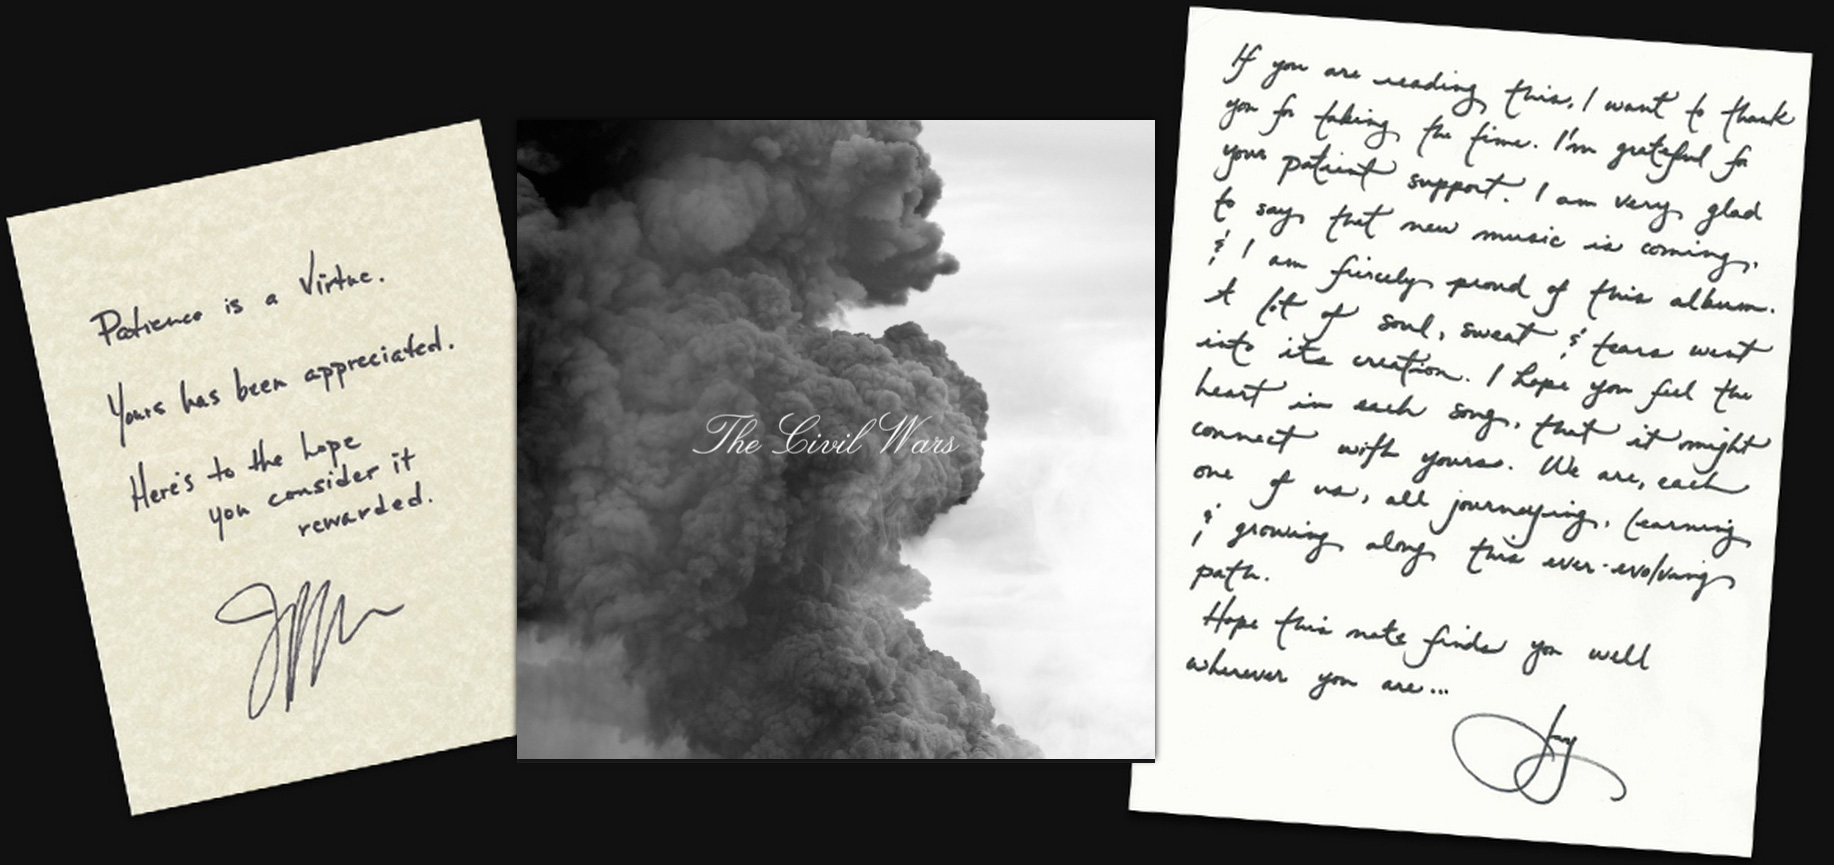 Patience is a Virtue.
Yours has been appreciated.
Here's to the hope
you consider it
rewarded.
The Civil Wars
If you are reading this, I want to thank
you for taking the time. I'm grateful for
your patient support. I am very glad
to say that new music is coming,
& I am fiercely proud of this album.
A lot of soul, sweat & tears went
into its creation. I hope you feel the
heart in each song, that it might
connect with yours. We are, each
one of us, all journeying, learning
& growing along this ever-evolving
path.
Hope this note finds you well
wherever you are...
Joy